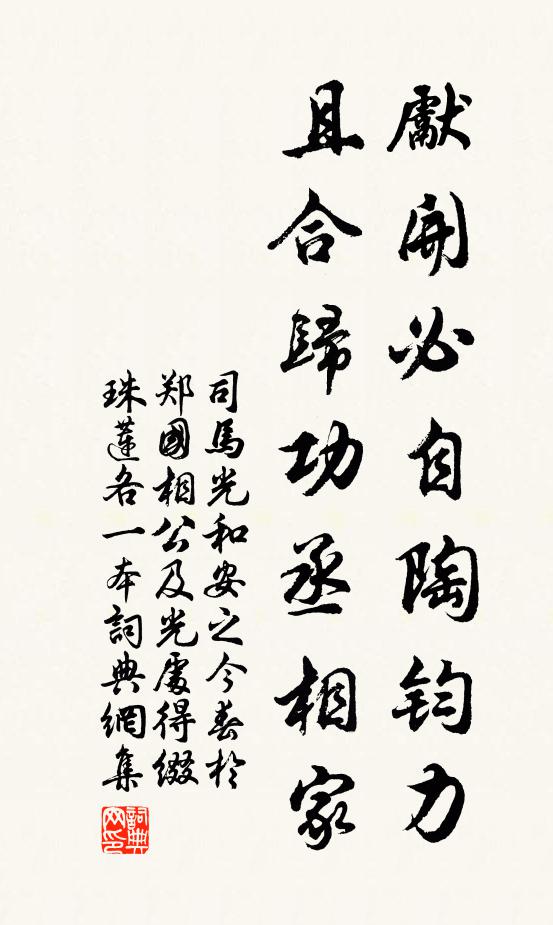 獻開必自陶鈞力
且合歸功丞相家
司馬光和安之今春於
郑國相公及光處得綴
珠蓮各一本詞典網集
詞典
网印